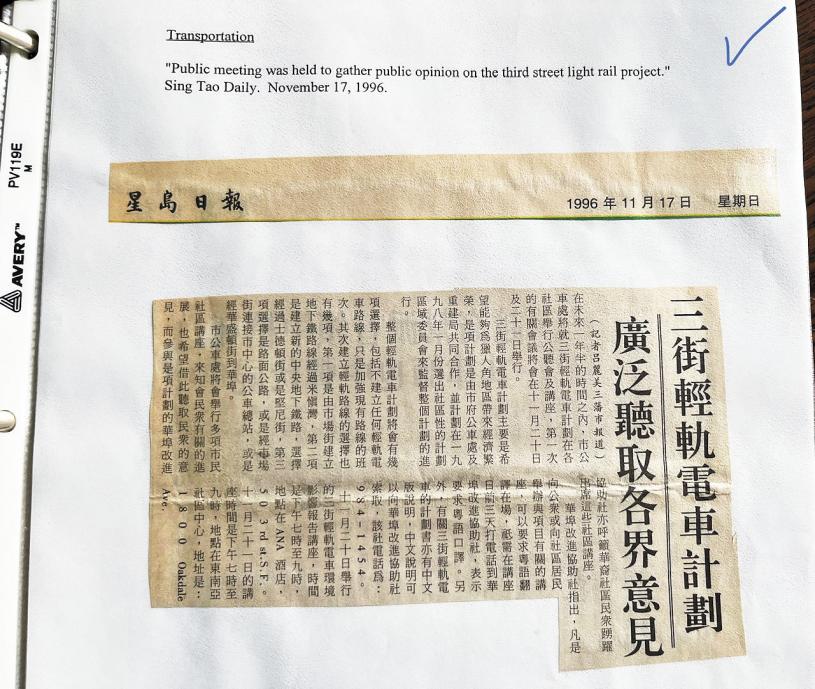 Transportation
"Public meeting was held to gather public opinion on the third street light rail project."
Sing Tao Daily. November 17, 1996.
PV119E
M
AVERY™
星島日報
1996 年 11 月 17 日
星期日
三街輕軌電車計劃
廣泛聽取各界意見
（記者呂麗美三藩市報道）
在未來一年半的時間之內，市公
車處將就三街輕軌電車計劃在各
社區舉行公聽會及講座，第一次
的有關會議將會在十一月二十日
及二十一日舉行。
三街輕軌電車計劃主要是希
望能夠爲獵人角地區帶來經濟繁
榮，是項計劃是由市府公車處及
重建局共同合作，並計劃在一九
九八年一月份選出社區性的計劃
區域委員會來監督整個計劃的進
行。
整個輕軌電車計劃將會有幾
項選擇，包括不建立任何輕軌電
車路線，只是加強現有路線的班
次。其次建立輕軌路線的選擇也
有幾項，第一項是由市場街建立
地下鐵路線經過米慎灣，第二項
是建立新的中央地下鐵路，選擇
經過士德頓街或是堅尼街，第三
項選擇是路面公路，或是經市場
街連接市中心的公車總站，或是
經華盛頓街到華埠。
市公車處將會舉行多項市民
社區講座，來知會民衆有關的進
展，也希望借此聽取民衆的意
見，而參與是項計劃的華埠改進
協助社亦呼籲華裔社區民衆踴躍
出席這些社區講座。
華埠改進協助社指出，凡是
向公衆或向社區居民
舉辦與項目有關的講
座，可以要求粵語翻
譯在場，祇需在講座
日前三天打電話到華
埠改進協助社，表示
要求粵語口譯。另
外，有關三街輕軌電
車的計劃書亦有中文
版說明，中文說明可
以向華埠改進協助社
索取，該社電話爲：
984-1454。
十一月二十日舉行
的三街輕軌電車環境
影響報告講座，時間
是下午七時至九時，
地點在 ANA 酒店，
50 3rd st. S.F.。
十一月二十一日的講
座時間是下午七時至
九時，地點在東南亞
社區中心，地址是：
1800 Oakdale
Ave.